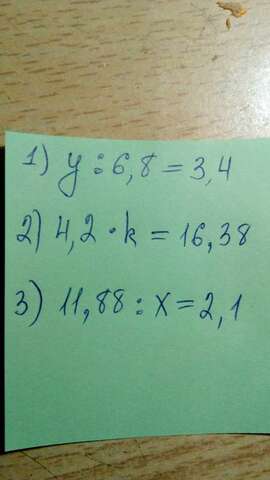 1) y : 6,8 = 3,4
2) 4,2 · k = 16,38
3) 11,88 : x = 2,1